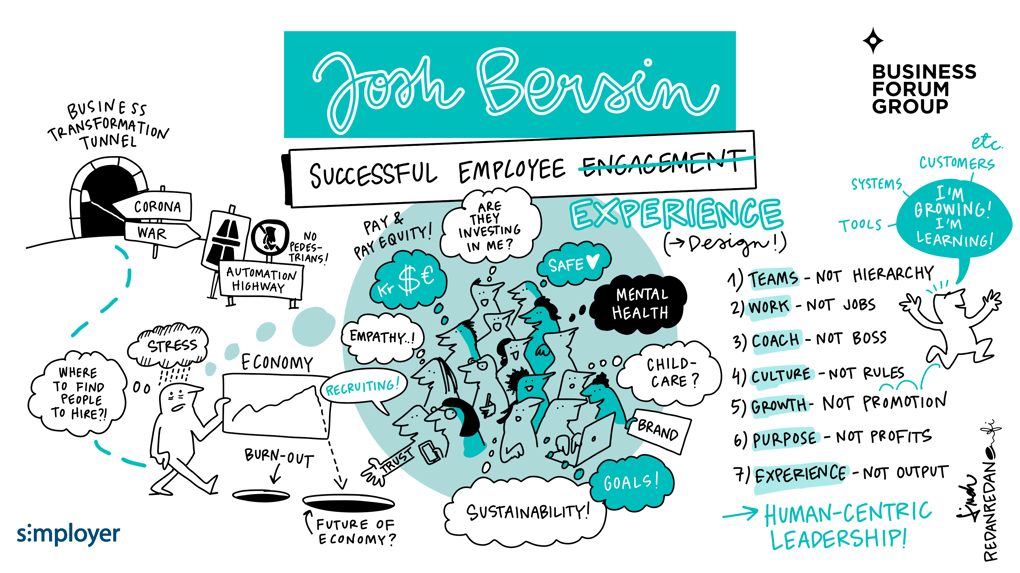 Josh Bersin
SUCCESSFUL EMPLOYEE ENGAGEMENT
EXPERIENCE
(→ Design!)
BUSINESS
FORUM
GROUP
BUSINESS
TRANSFORMATION
TUNNEL
CORONA
WAR
NO
PEDES-
TRIANS!
AUTOMATION
HIGHWAY
STRESS
WHERE
TO FIND
PEOPLE
TO HIRE?!
ECONOMY
BURN-OUT
FUTURE OF
ECONOMY?
PAY &
PAY EQUITY!
Kr $ €
ARE
THEY
INVESTING
IN ME?
SAFE
MENTAL
HEALTH
EMPATHY..!
RECRUITING!
CHILD-
CARE?
BRAND
TRUST
GOALS!
SUSTAINABILITY!
etc.
CUSTOMERS
SYSTEMS
TOOLS
I'M
GROWING!
I'M
LEARNING!
1) TEAMS - NOT HIERARCHY
2) WORK - NOT JOBS
3) COACH - NOT BOSS
4) CULTURE - NOT RULES
5) GROWTH - NOT PROMOTION
6) PURPOSE - NOT PROFITS
7) EXPERIENCE - NOT OUTPUT
→ HUMAN-CENTRIC
LEADERSHIP!
s:mployer
REDANREDAN